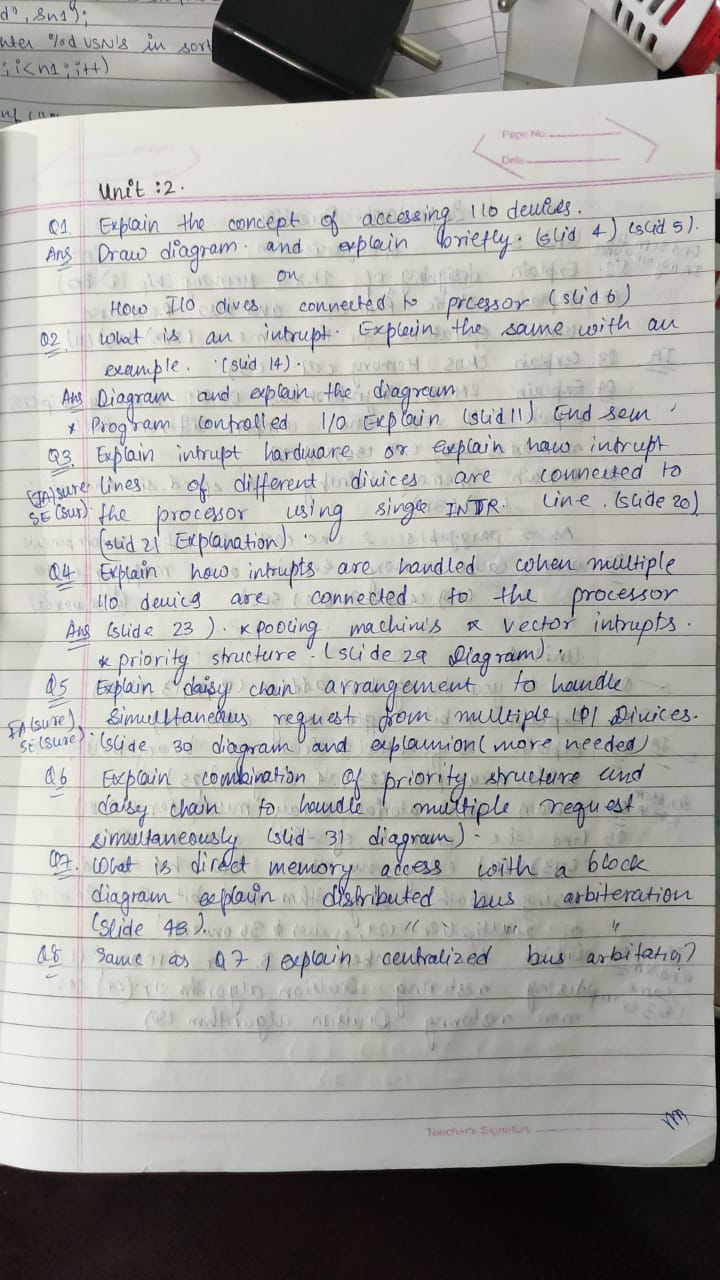 d", &n1);
nter %d USN's in sort
; i<n1; i++)
Page No.
Date
Unit : 2.
Q1. Explain the concept of accessing I/O devices.
Ans Draw diagram and explain briefly. (slid 4) (slid 5).
or
How I/O dives connected to prcessor (slid 6)
Q2. What is an intrupt. Explain the same with an
example. (slid 14).
Ans Diagram and explain the diagram
* Program controlled I/O Explain (slid 11) End sem
Q3. Explain intrupt hardware or Explain how intrupt
(IA) sure lines of different divices are connected to
SE (sur) the processor using single INTR. line. (slide 20)
(slid 21 Explanation).
Q4 Explain how intrupts are handled when multiple
I/O device are connected to the processor
Ans (slide 23). * pooling machini's * vector intrupts.
* priority structure. (slide 29 Diagram).
Q5 Explain daisy chain arrangement to handle
IA (sure) simultaneous request from multiple I/O Divices.
SE (sure). (slide 30 diagram and explaunion (more needed)
Q6 Explain combination of priority structure and
daisy chain to handle multiple request
simultaneously (slid 31 diagram).
Q7. What is direct memory access with a block
diagram explain distributed bus arbiteration
(slide 48).
Q8 Same as Q7, explain centralized bus arbitatio?
Teacher's Signature